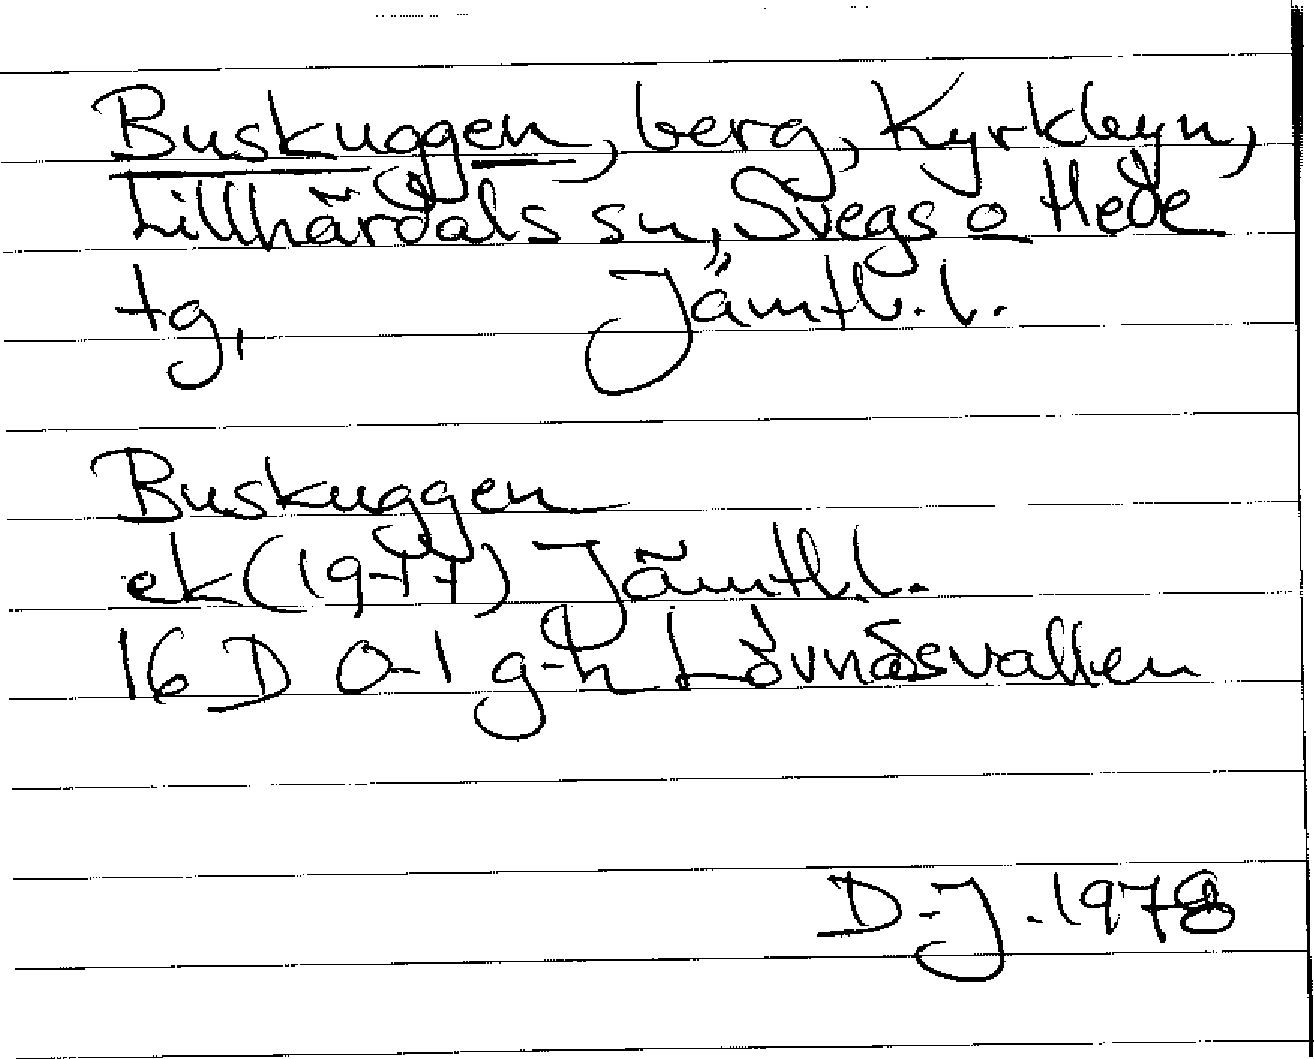 Buskuggen, berg, Kyrkbyn,
Lillhärdals sn, Svegs o Hede
tg, Jämtl. l.
Buskuggen
ek (1977) Jämtl. l.
16 D 0-1 g-h Lövnäsvallen
D-J. 1978